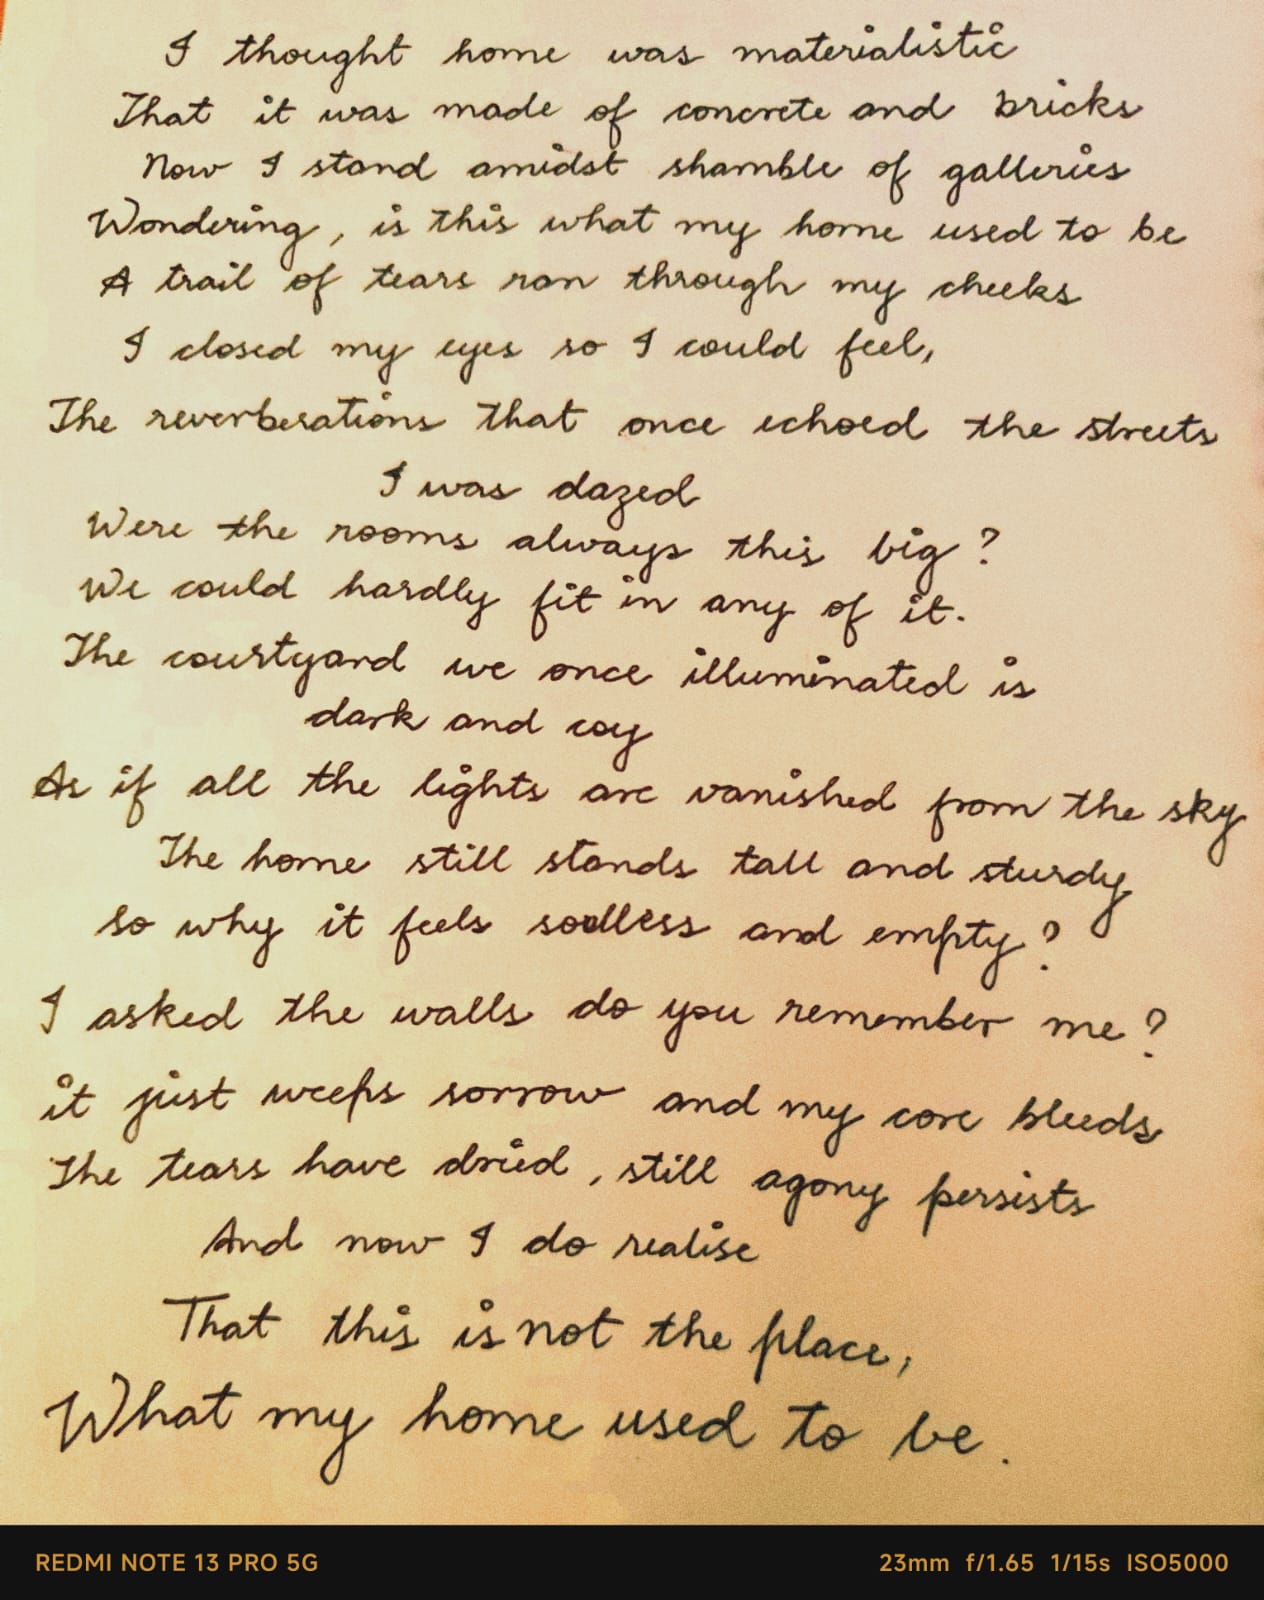 I thought home was materialistic
That it was made of concrete and bricks
Now I stand amidst shamble of galleries
Wondering, is this what my home used to be
A trail of tears ran through my cheeks
I closed my eyes so I could feel,
The reverberations that once echoed the streets
I was dazed
Were the rooms always this big?
We could hardly fit in any of it.
The courtyard we once illuminated is
dark and coy
As if all the lights are vanished from the sky
The home still stands tall and sturdy
So why it feels soulless and empty?
I asked the walls do you remember me?
it just weeps sorrow and my core bleeds
The tears have dried, still agony persists
And now I do realise
That this is not the place,
What my home used to be.
REDMI NOTE 13 PRO 5G
23mm f/1.65 1/15s ISO5000